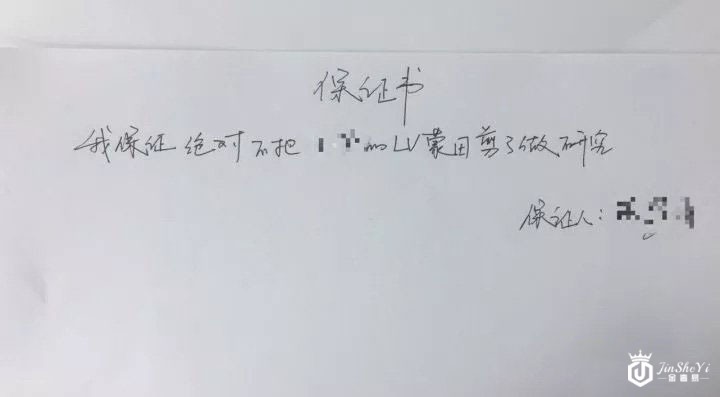 保证书
我保证绝对不把的LV蒙田剪了做研究
保证人:
JinSheYi
金奢易